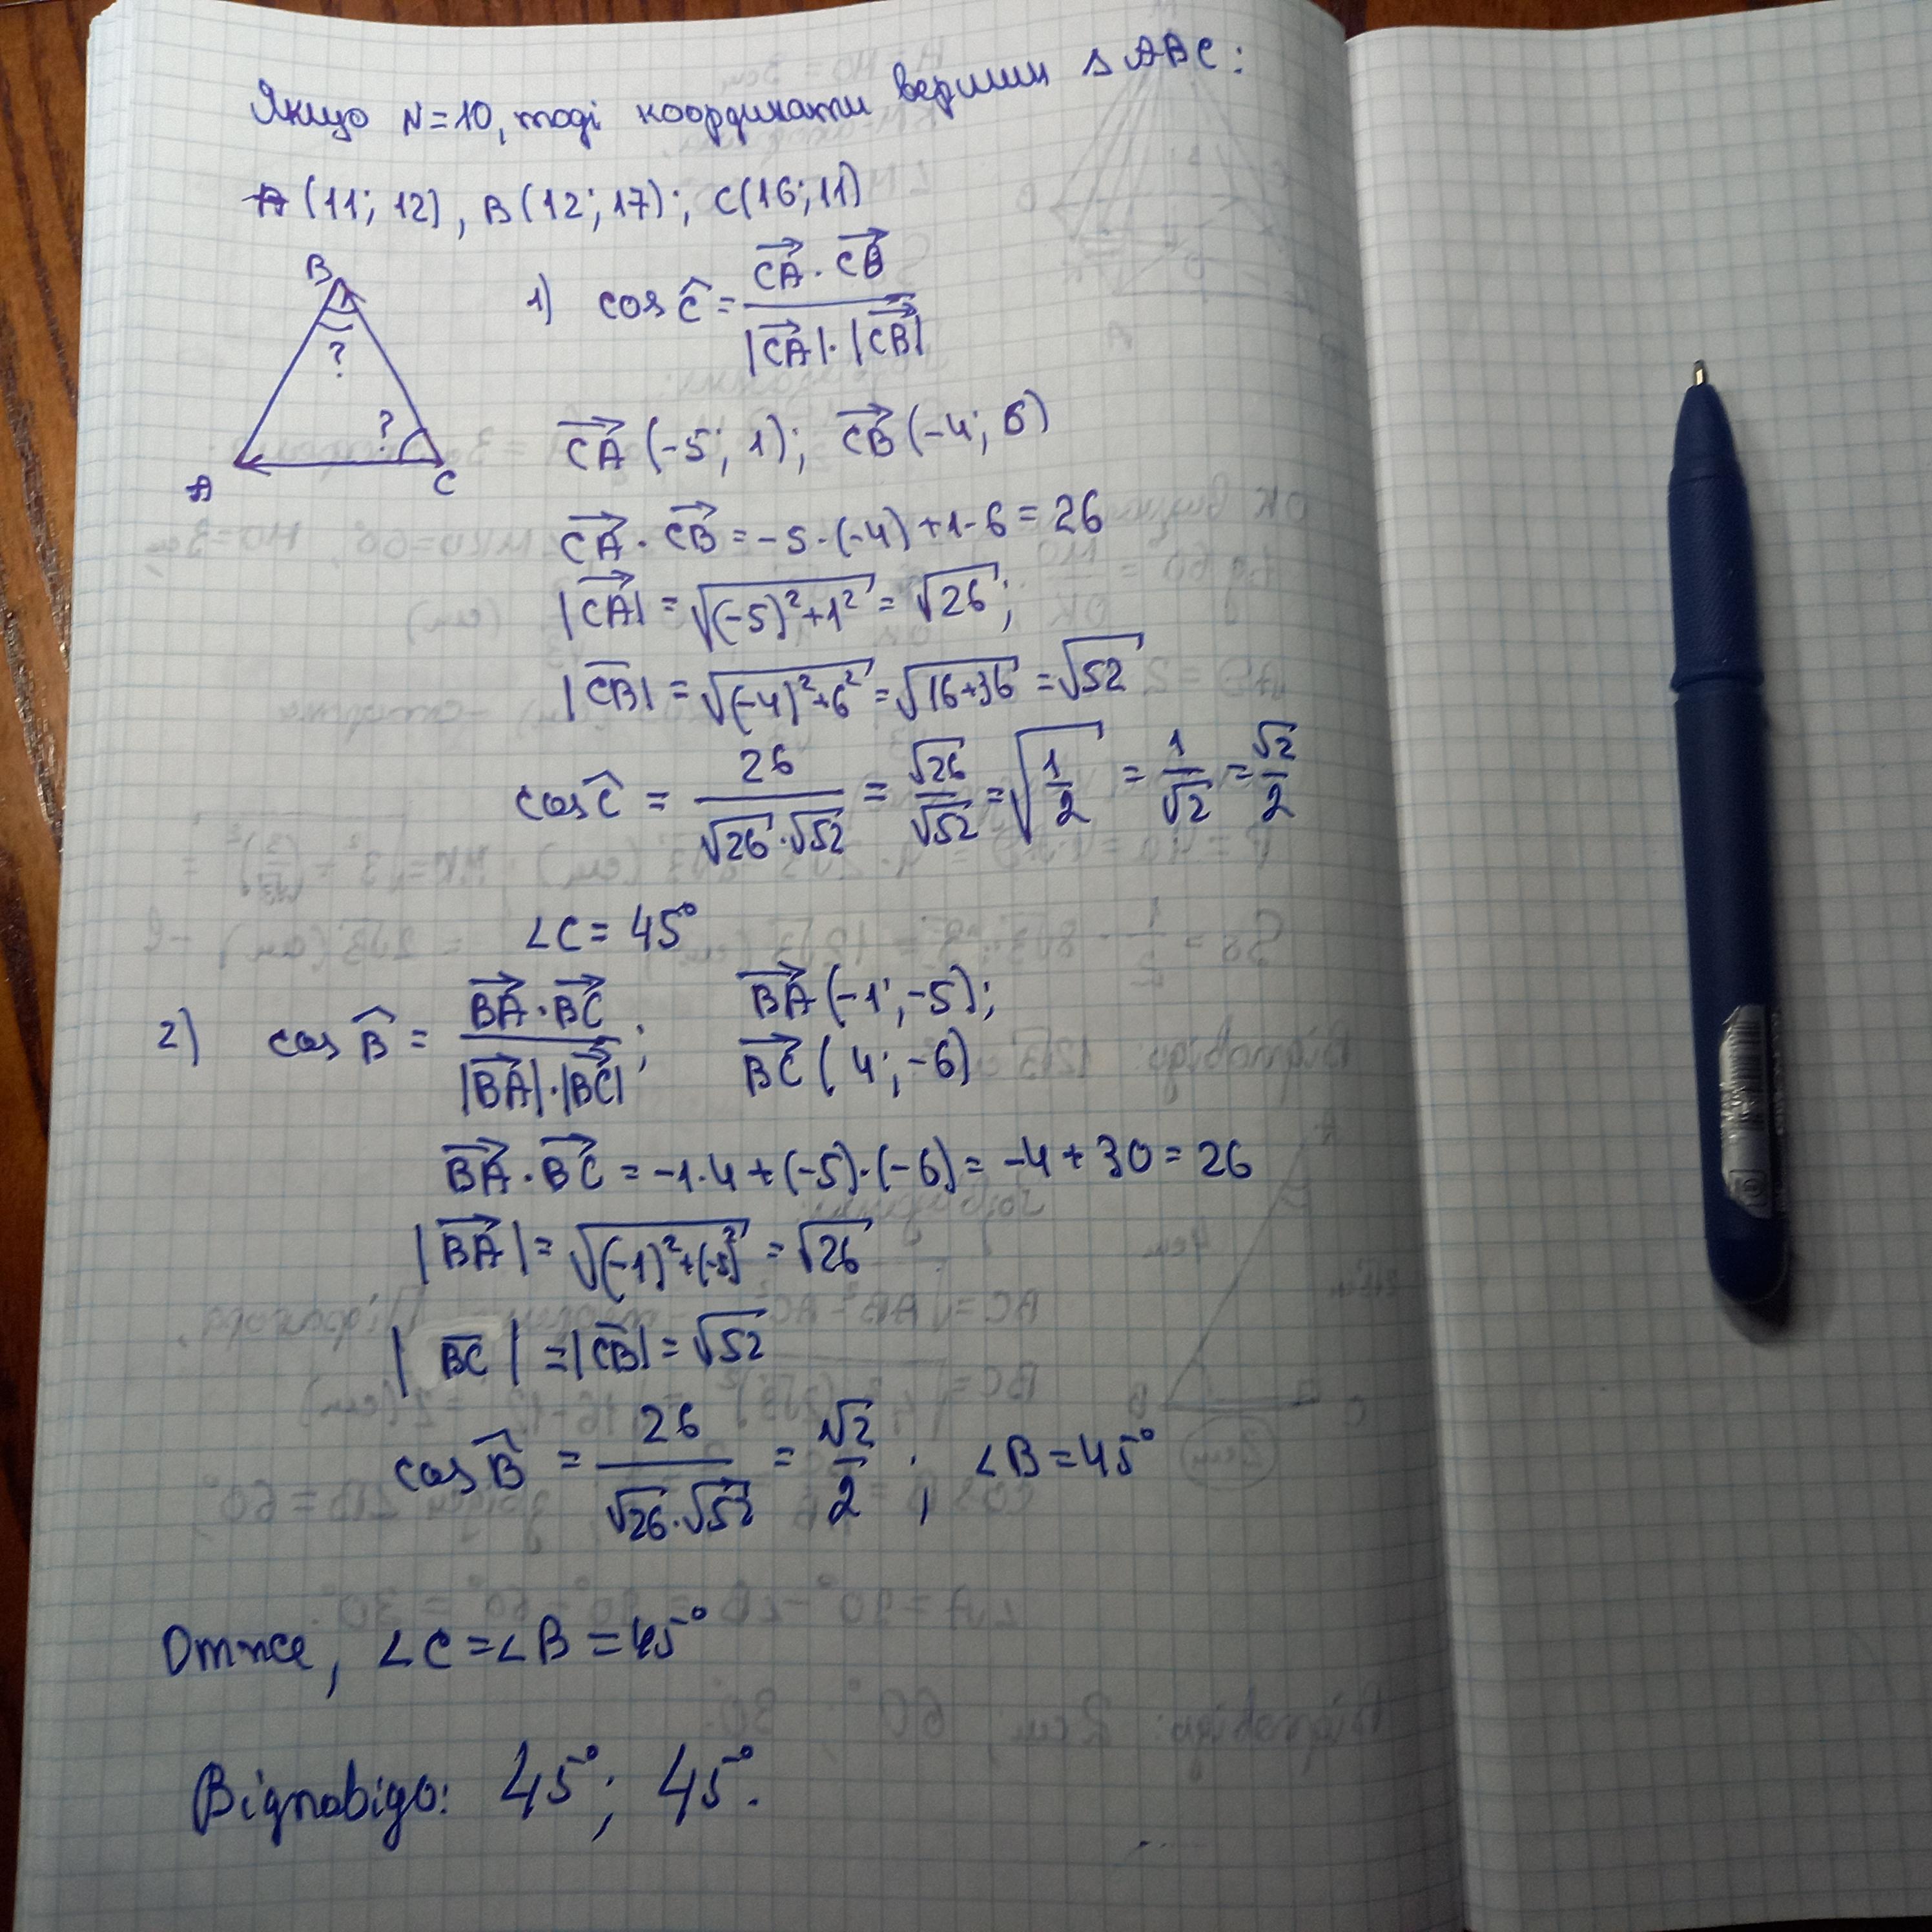 Якщо N=10, тоді координати вершин Δ ABC:
A (11; 12), B (12; 17); C(16; 11)
B
?
?
A
C
1) cos Ĉ = (CA⃗ · CB⃗) / (|CA⃗| · |CB⃗|)
CA⃗ (-5; 1); CB⃗ (-4; 6)
CA⃗ · CB⃗ = -5 · (-4) + 1 · 6 = 26
|CA⃗| = √((-5)² + 1²) = √26;
|CB| = √((-4)² + 6²) = √(16+36) = √52
cos Ĉ = 26 / (√26 · √52) = √26/√52 = √(1/2) = 1/√2 = √2/2
∠C = 45°
2) cos B̂ = (BA⃗ · BC⃗) / (|BA⃗| · |BC⃗|); BA⃗ (-1; -5);
BC⃗ (4; -6)
BA⃗ · BC⃗ = -1 · 4 + (-5) · (-6) = -4 + 30 = 26
|BA⃗| = √((-1)² + (-5)²) = √26
|BC| = |CB| = √52
cos B̂ = 26 / (√26 · √52) = √2/2; ∠B = 45°
Отже, ∠C = ∠B = 45°
Відповідь: 45°; 45°.